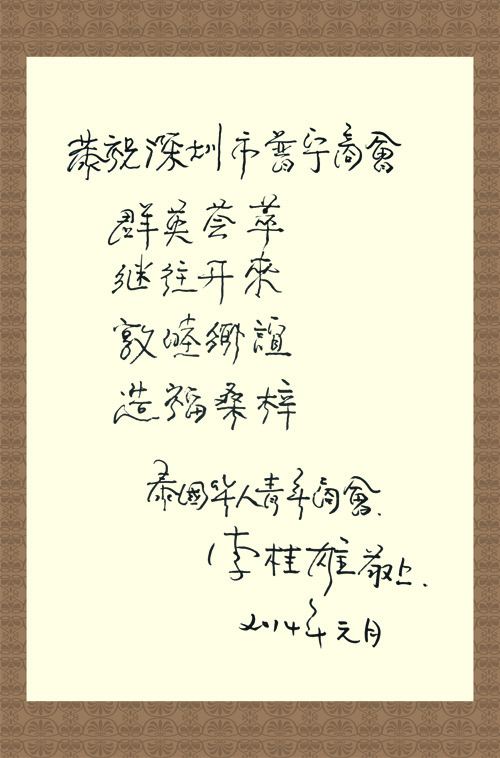 恭祝深圳市普宁商會
群英荟萃
继往开來
敦睦鄉誼
造福桑梓
泰國华人青年商會.
李桂雄敬上.
2014年元月